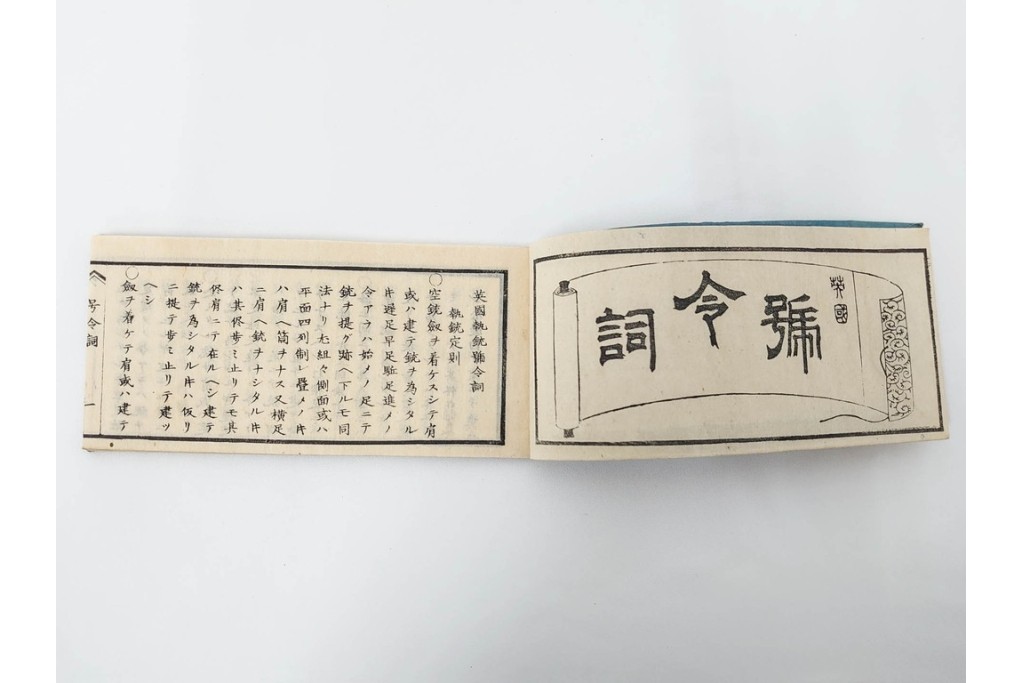 英國
號令詞
英國執銃號令詞
執銃定則
○空銃劔ヲ着ケスシテ肩
或ハ建テ銃ヲ為シタル
片遅足早足駈足進メノ
令アラハ始メノ足ニテ
銃ヲ提ゲ跡ヘ下ルモ同
法ナリ尤組々側面或ハ
平面四列制レ疊メノ片
ハ肩ヘ筒ヲナス又横足
ニ肩ヘ銃ヲナシタル片
ハ其侭歩ミ止リテモ其
侭肩ニテ在ルヘシ建テ
銃ヲ為シタル片ハ仮リ
ニ提テ歩ミ止リテ建ツ
ヘシ
○劔ヲ着ケテ肩或ハ建テ
号令詞
一